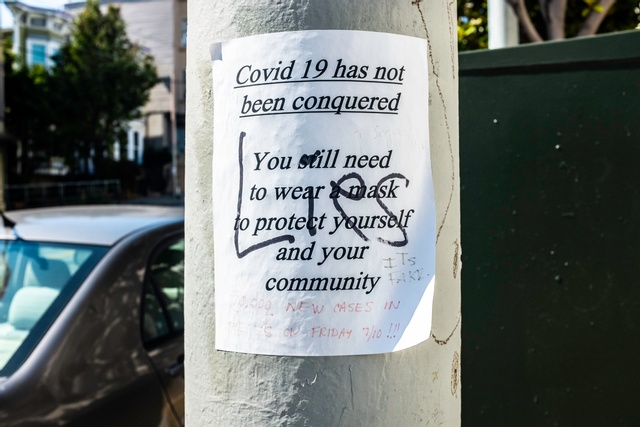 Covid 19 has not
been conquered
You still need
to wear a mask
to protect yourself
and your
community
LIES
ITS
FAKE.
NEW CASES IN
ON FRIDAY 7/10 !!!